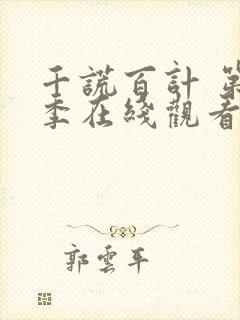 千謊百計 第
季在綫觀看
郭雲平